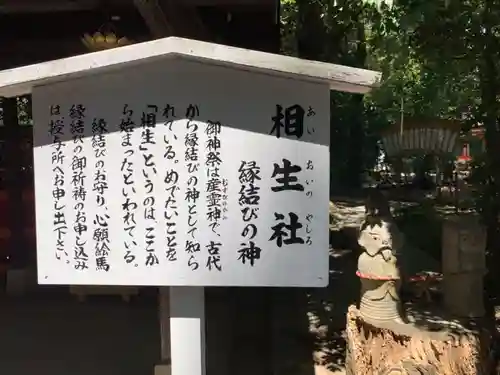 相生社
あいおいのやしろ
縁結びの神
御神祭は産霊神で、古代
むすびのかみ
から縁結びの神として知ら
れている。めでたいことを
「相生」というのは、ここか
ら始まったといわれている。
縁結びのお守り、心願絵馬
縁結びの御祈祷のお申し込み
は授与所へお申し出下さい。